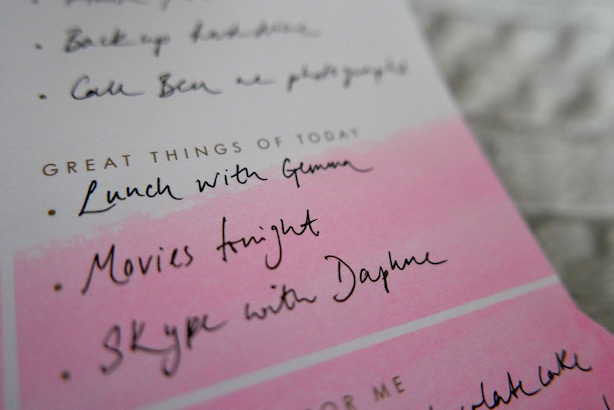 • Back up hard drive
• Call Ben re photographs
GREAT THINGS OF TODAY
• Lunch with Gemma
• Movies tonight
• Skype with Daphne
FOR ME
chocolate cake